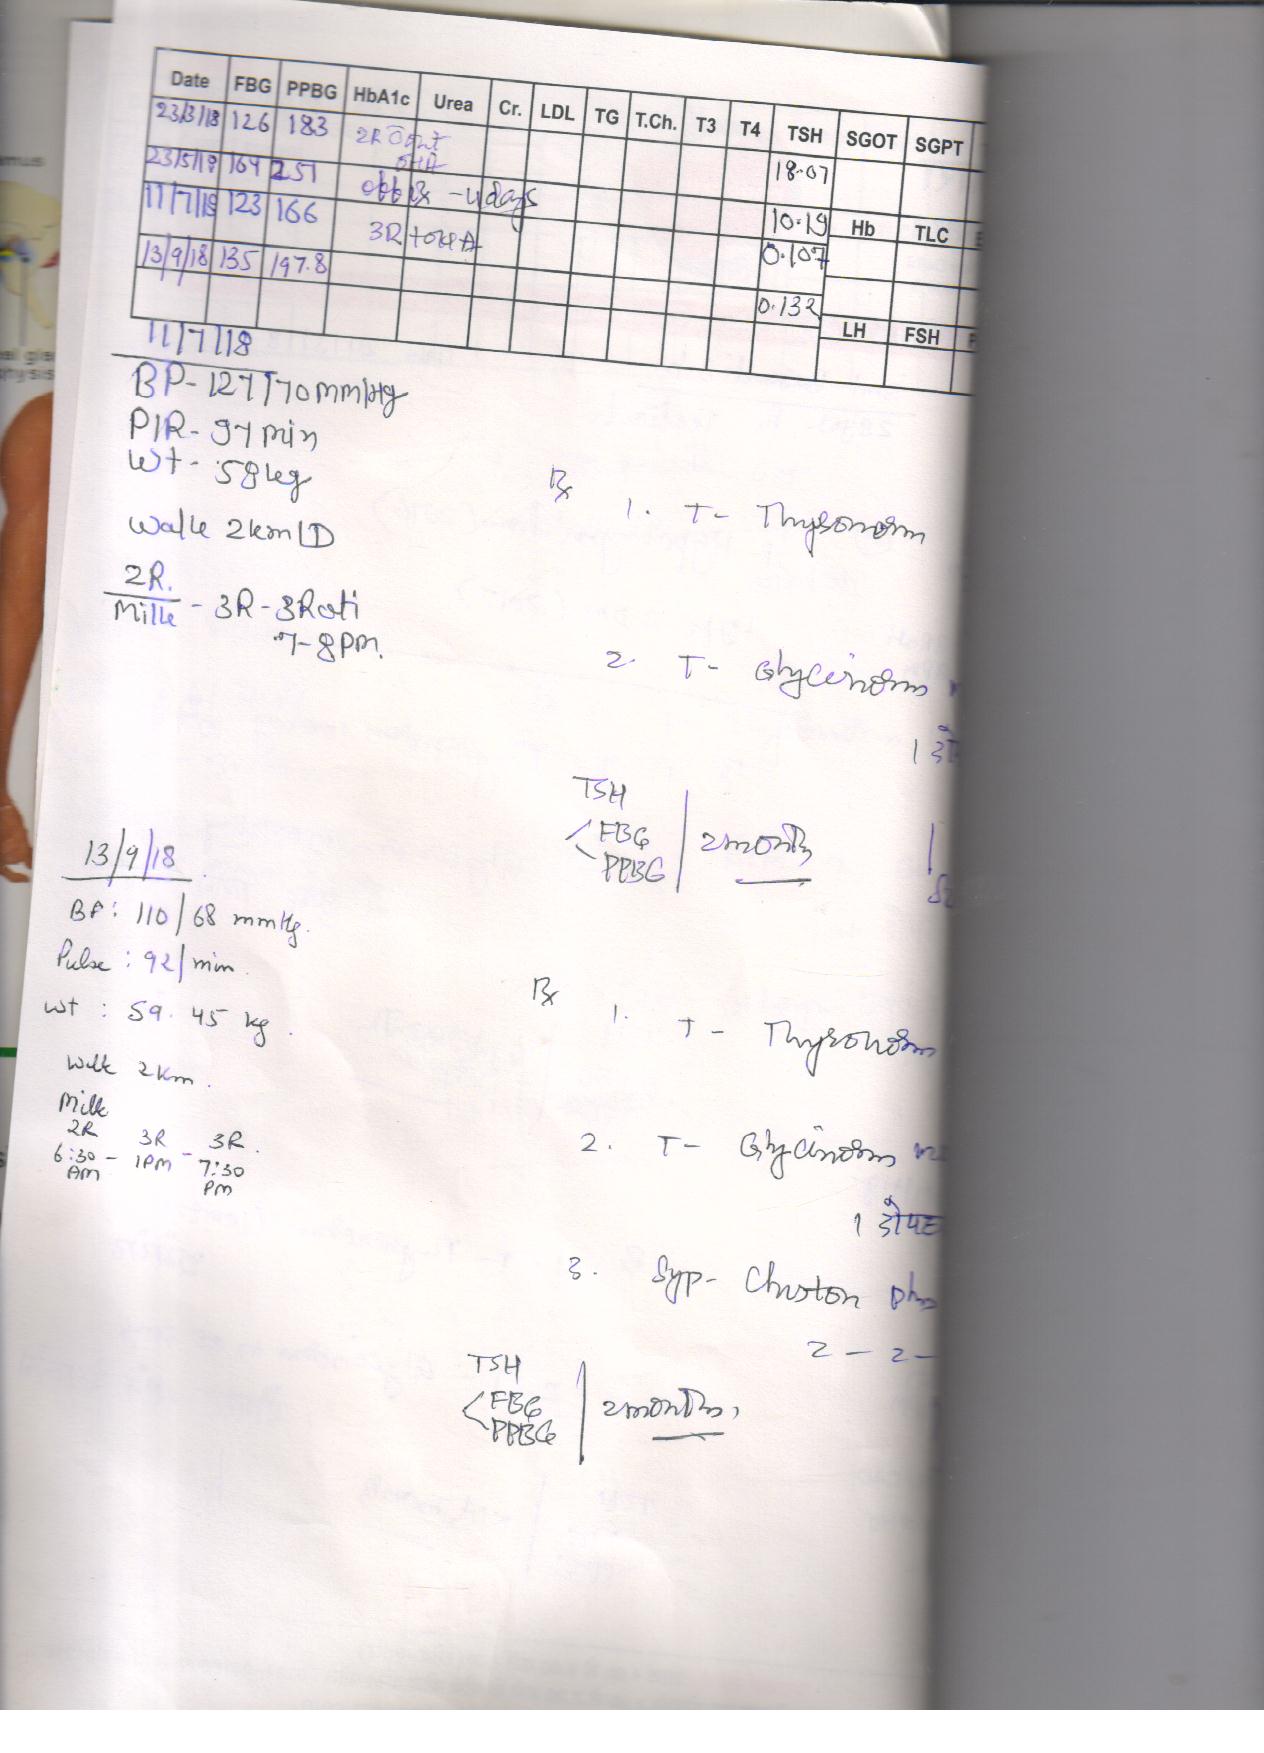 Date FBG PPBG HbA1c Urea Cr. LDL TG T.Ch. T3 T4 TSH SGOT SGPT
23/3/18 126 183 2R 18.07
23/5/18 164 251 - 4 days 10.19 Hb TLC
11/7/18 123 166 3R 0.107
13/9/18 135 197.8 0.132
LH FSH
11/7/18
BP- 127/70 mm/Hg
P/R- 97 min
Wt- 58 kg
Walk 2km/D
2R.
Milk - 3R - 3Roti
7-8 PM.
Rx
1. T- Thyronorm
2. T- Glycinorm
1
TSH
FBG
PPBG
2 months
13/9/18
BP: 110/68 mmHg.
Pulse : 92/min
wt : 59.45 kg.
Walk 2km.
Milk
2R 3R 3R.
6:30 - 1PM - 7:30
AM PM
Rx
1. T- Thyronorm
2. T- Glycinorm
1
3. Syp-
2 - 2 -
TSH
FBG
PPBG
2 months,